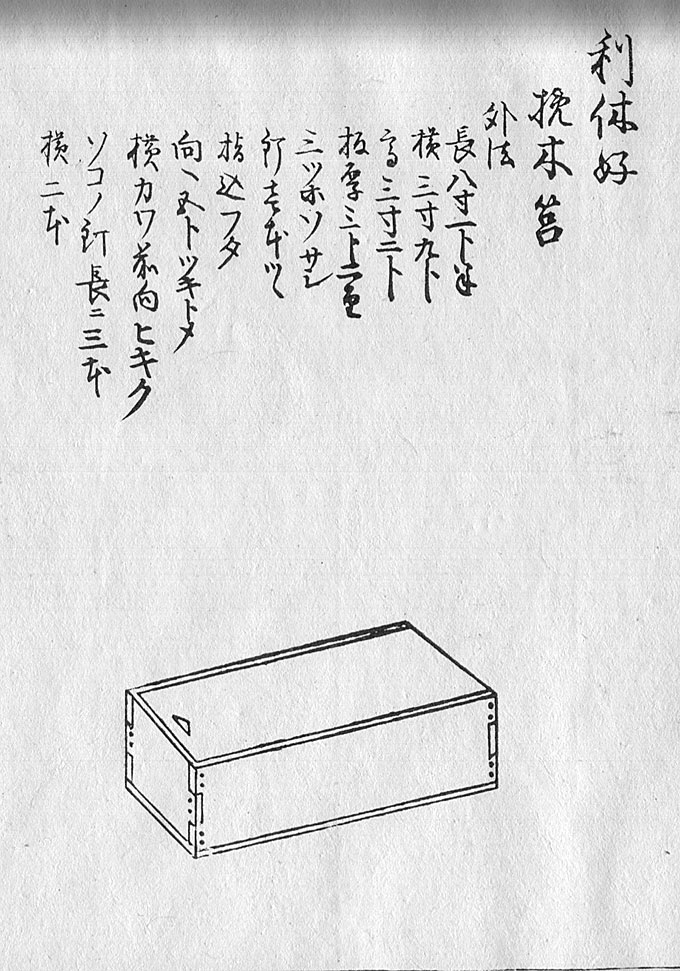 利休好
挽木筥
外法
長八寸一卜半
横三寸九卜
高三寸二卜
板厚三卜
三ツホソサシ
釘七本ツヽ
指込フタ
向ヘ五卜ツキトメ
横カワ前向ヒキク
ソコノ釘長ニ三本
横二本